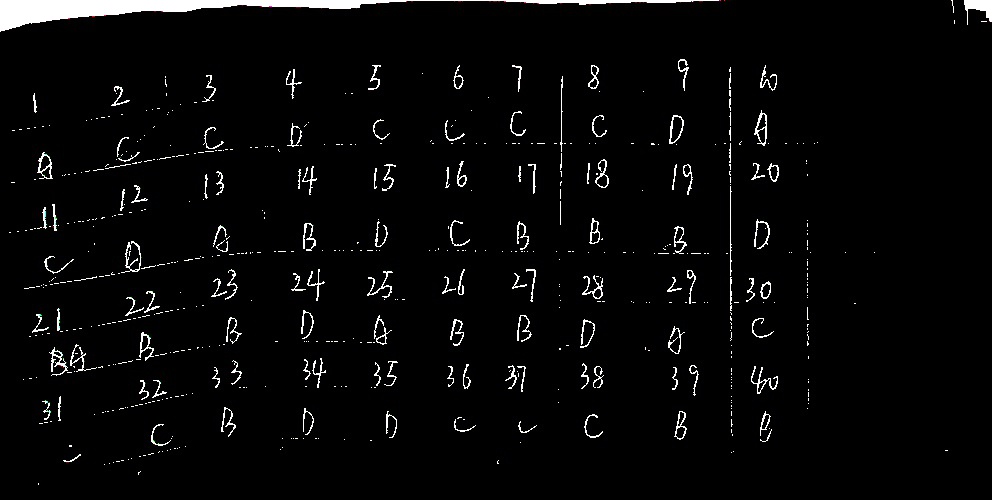 1 2 3 4 5 6 7 8 9 10
A C C D C C C C D A
11 12 13 14 15 16 17 18 19 20
C A A B D C B B B D
21 22 23 24 25 26 27 28 29 30
A B B D A B B D A C
31 32 33 34 35 36 37 38 39 40
C B D D C C C B B